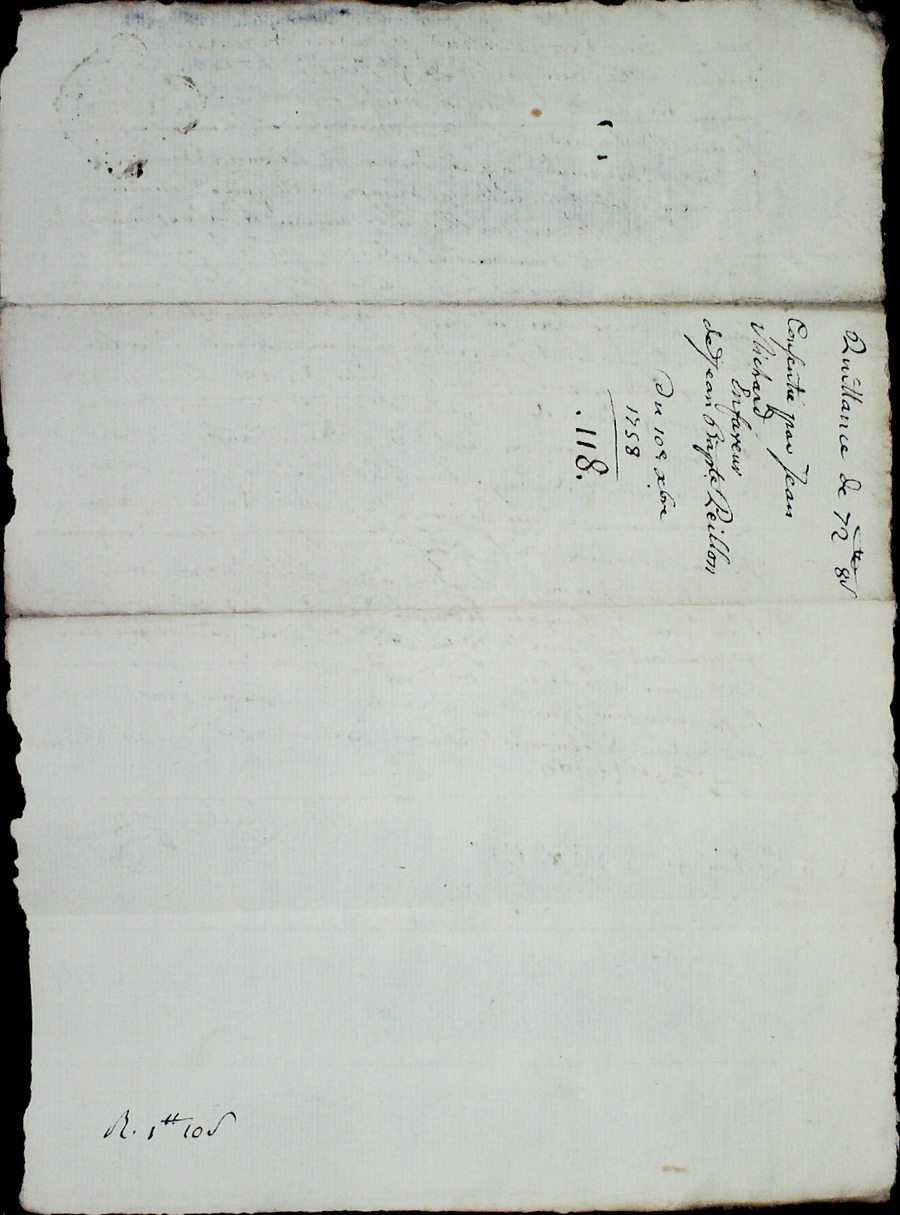 Quittance de 72tt 8s
Consentie par Jean
Michard
Enfaveur
de Jean Bapte Peillon
Du 10e xbre
1758
.118.
R. 1tt 10s